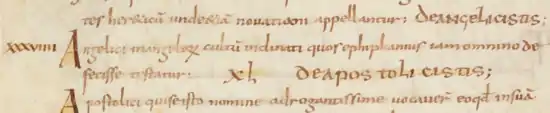 tes heresicũ undesuã novatioon appellantur: DEANGELICISTIS;
XXXVIIII Angelici inangeloꝝ cultũ inclinati quos ephiphanius iam omnino de
fecisse testatur: XL DEAPOSTOLICISTIS;
Apostolici quiseisto nomine adrogantissime vocaverᷓ eoqđ insuã